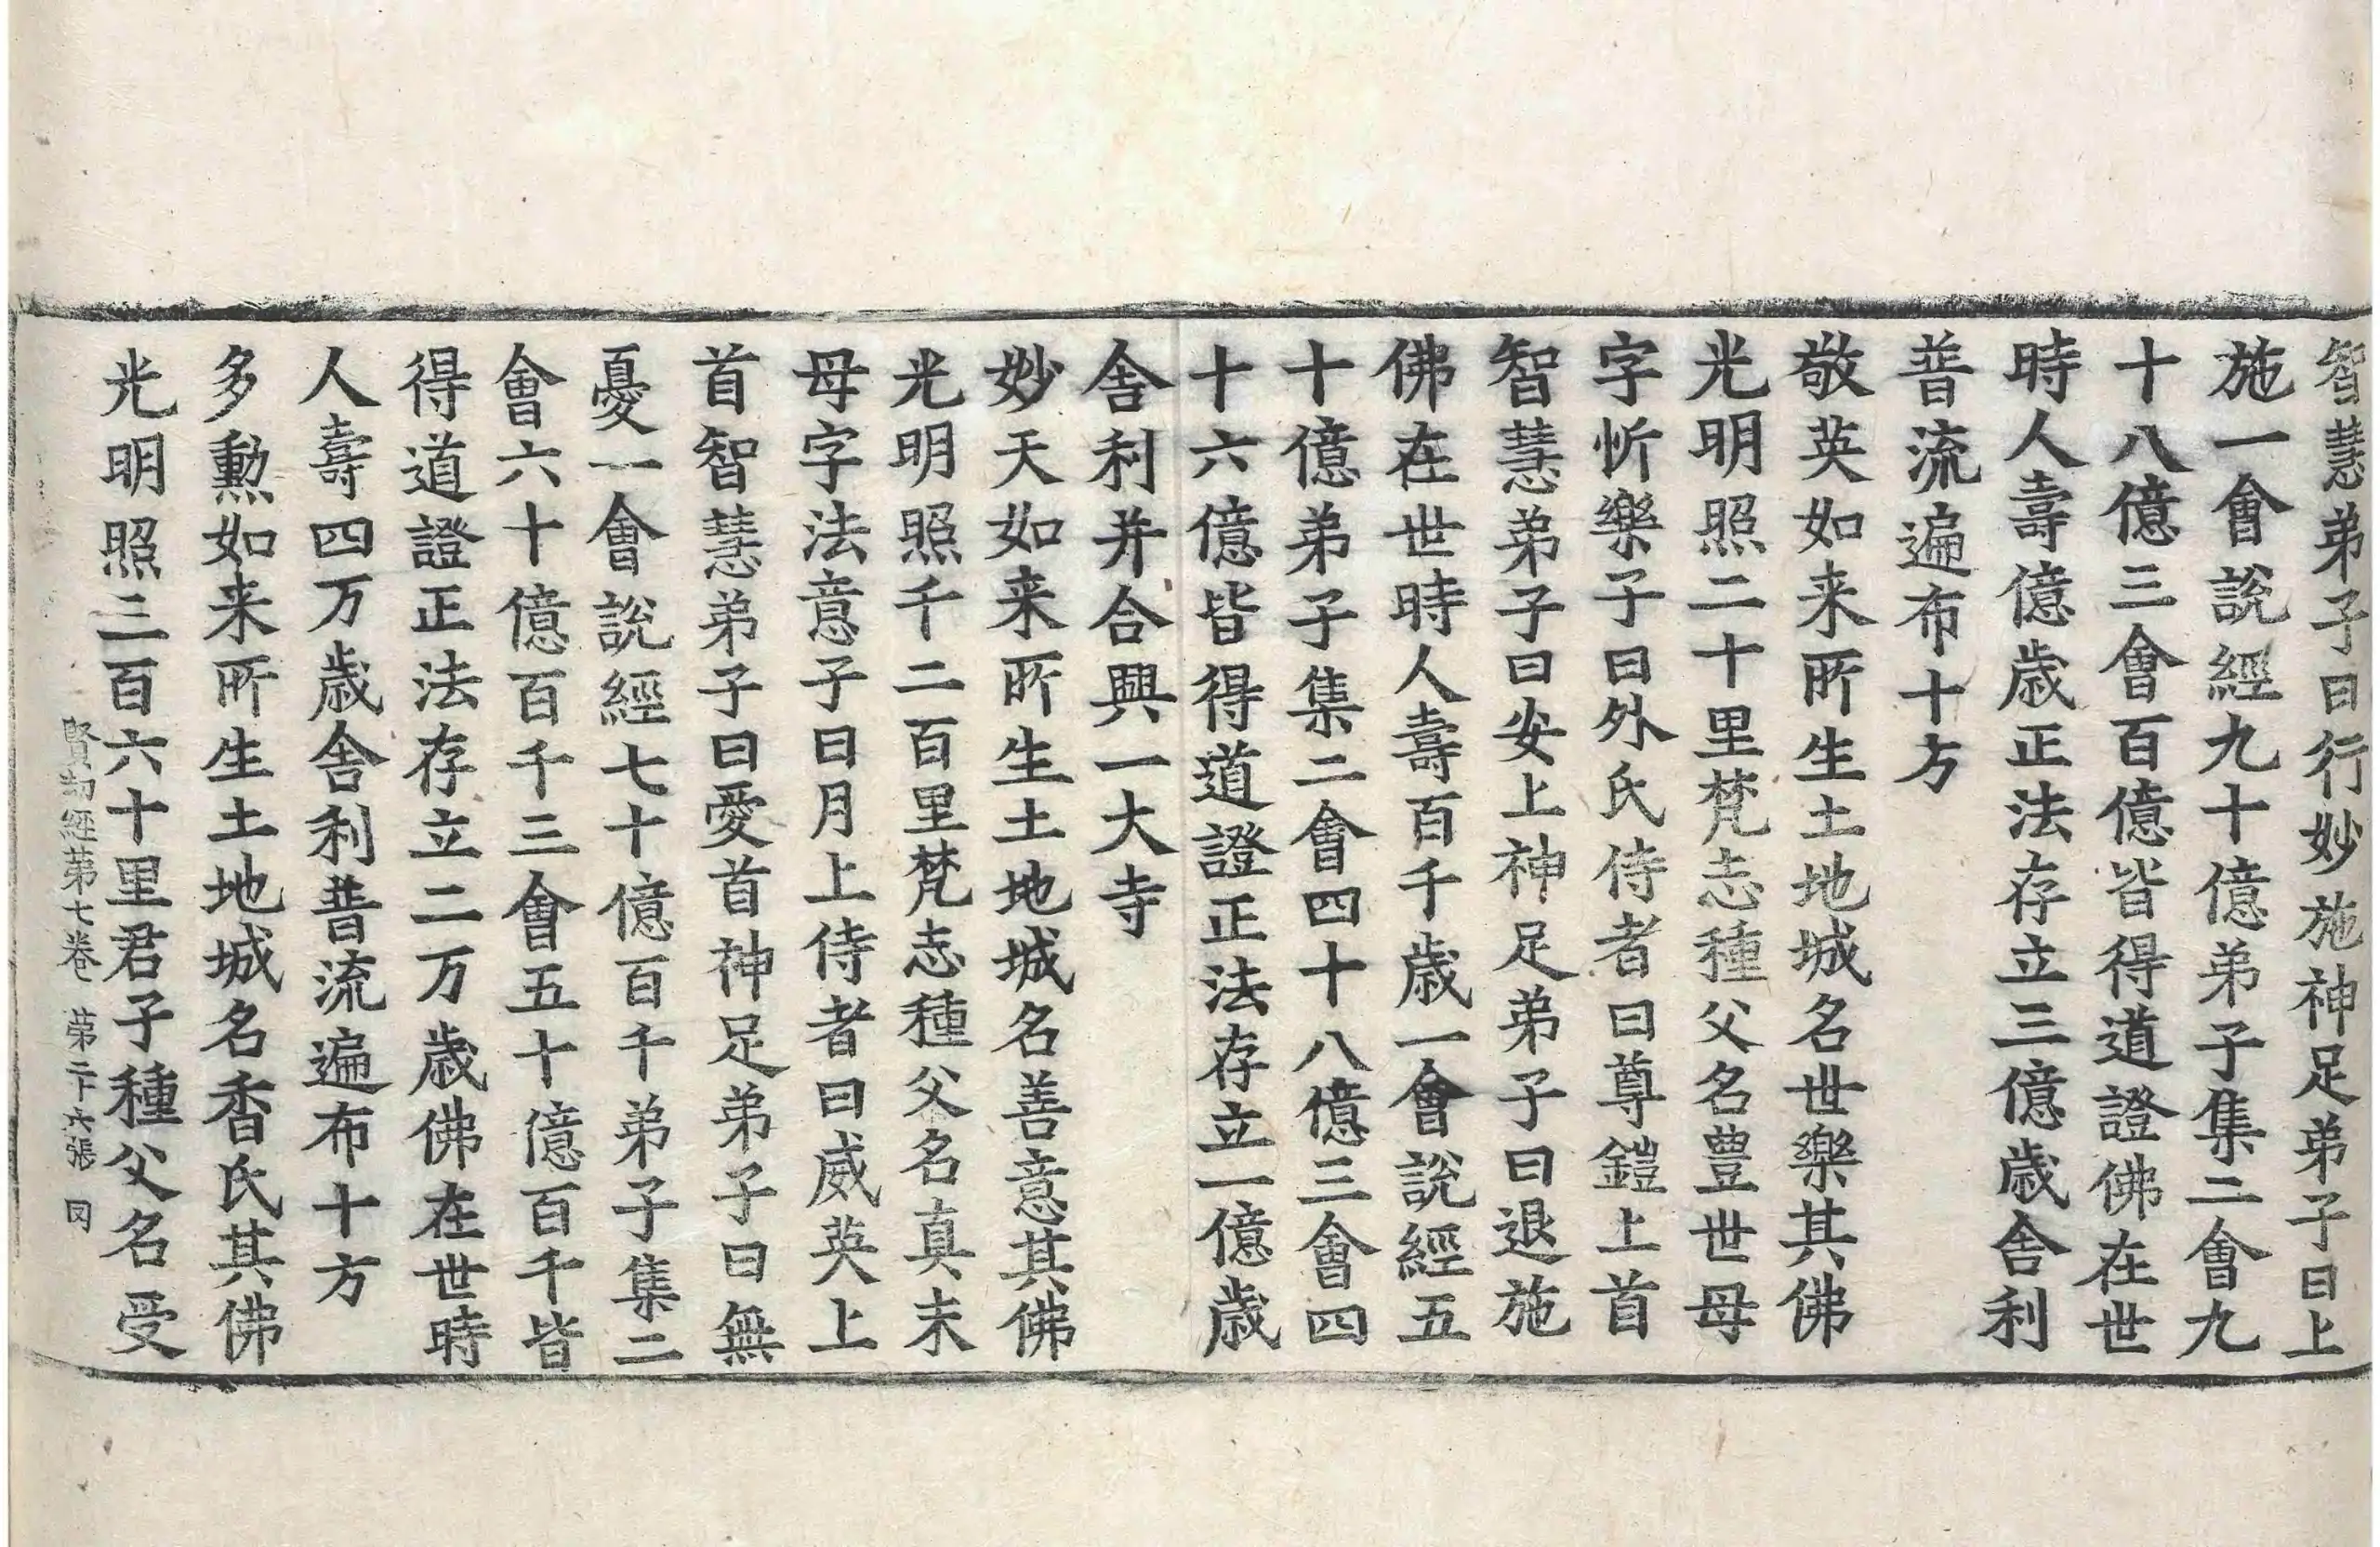 智慧弟子曰行妙施神足弟子曰上
施一會說經九十億弟子集二會九
十八億三會百億皆得道證佛在世
時人壽億歲正法存立三億歲舍利
普流遍布十方
敬英如来所生土地城名世樂其佛
光明照二十里梵志種父名豊世母
字忻樂子曰外氏侍者曰尊鎧上首
智慧弟子曰安上神足弟子曰退施
佛在世時人壽百千歲一會說經五
十億弟子集二會四十八億三會四
十六億皆得道證正法存立一億歲
舍利并合興一大寺
妙天如来所生土地城名善意其佛
光明照千二百里梵志種父名真末
母字法意子曰月上侍者曰威英上
首智慧弟子曰愛首神足弟子曰無
憂一會說經七十億百千弟子集二
會六十億百千三會五十億百千皆
得道證正法存立二万歲佛在世時
人壽四万歲舍利普流遍布十方
多勲如来所生土地城名香氏其佛
光明照三百六十里君子種父名受
賢劫經第七卷 第二十六張 罔